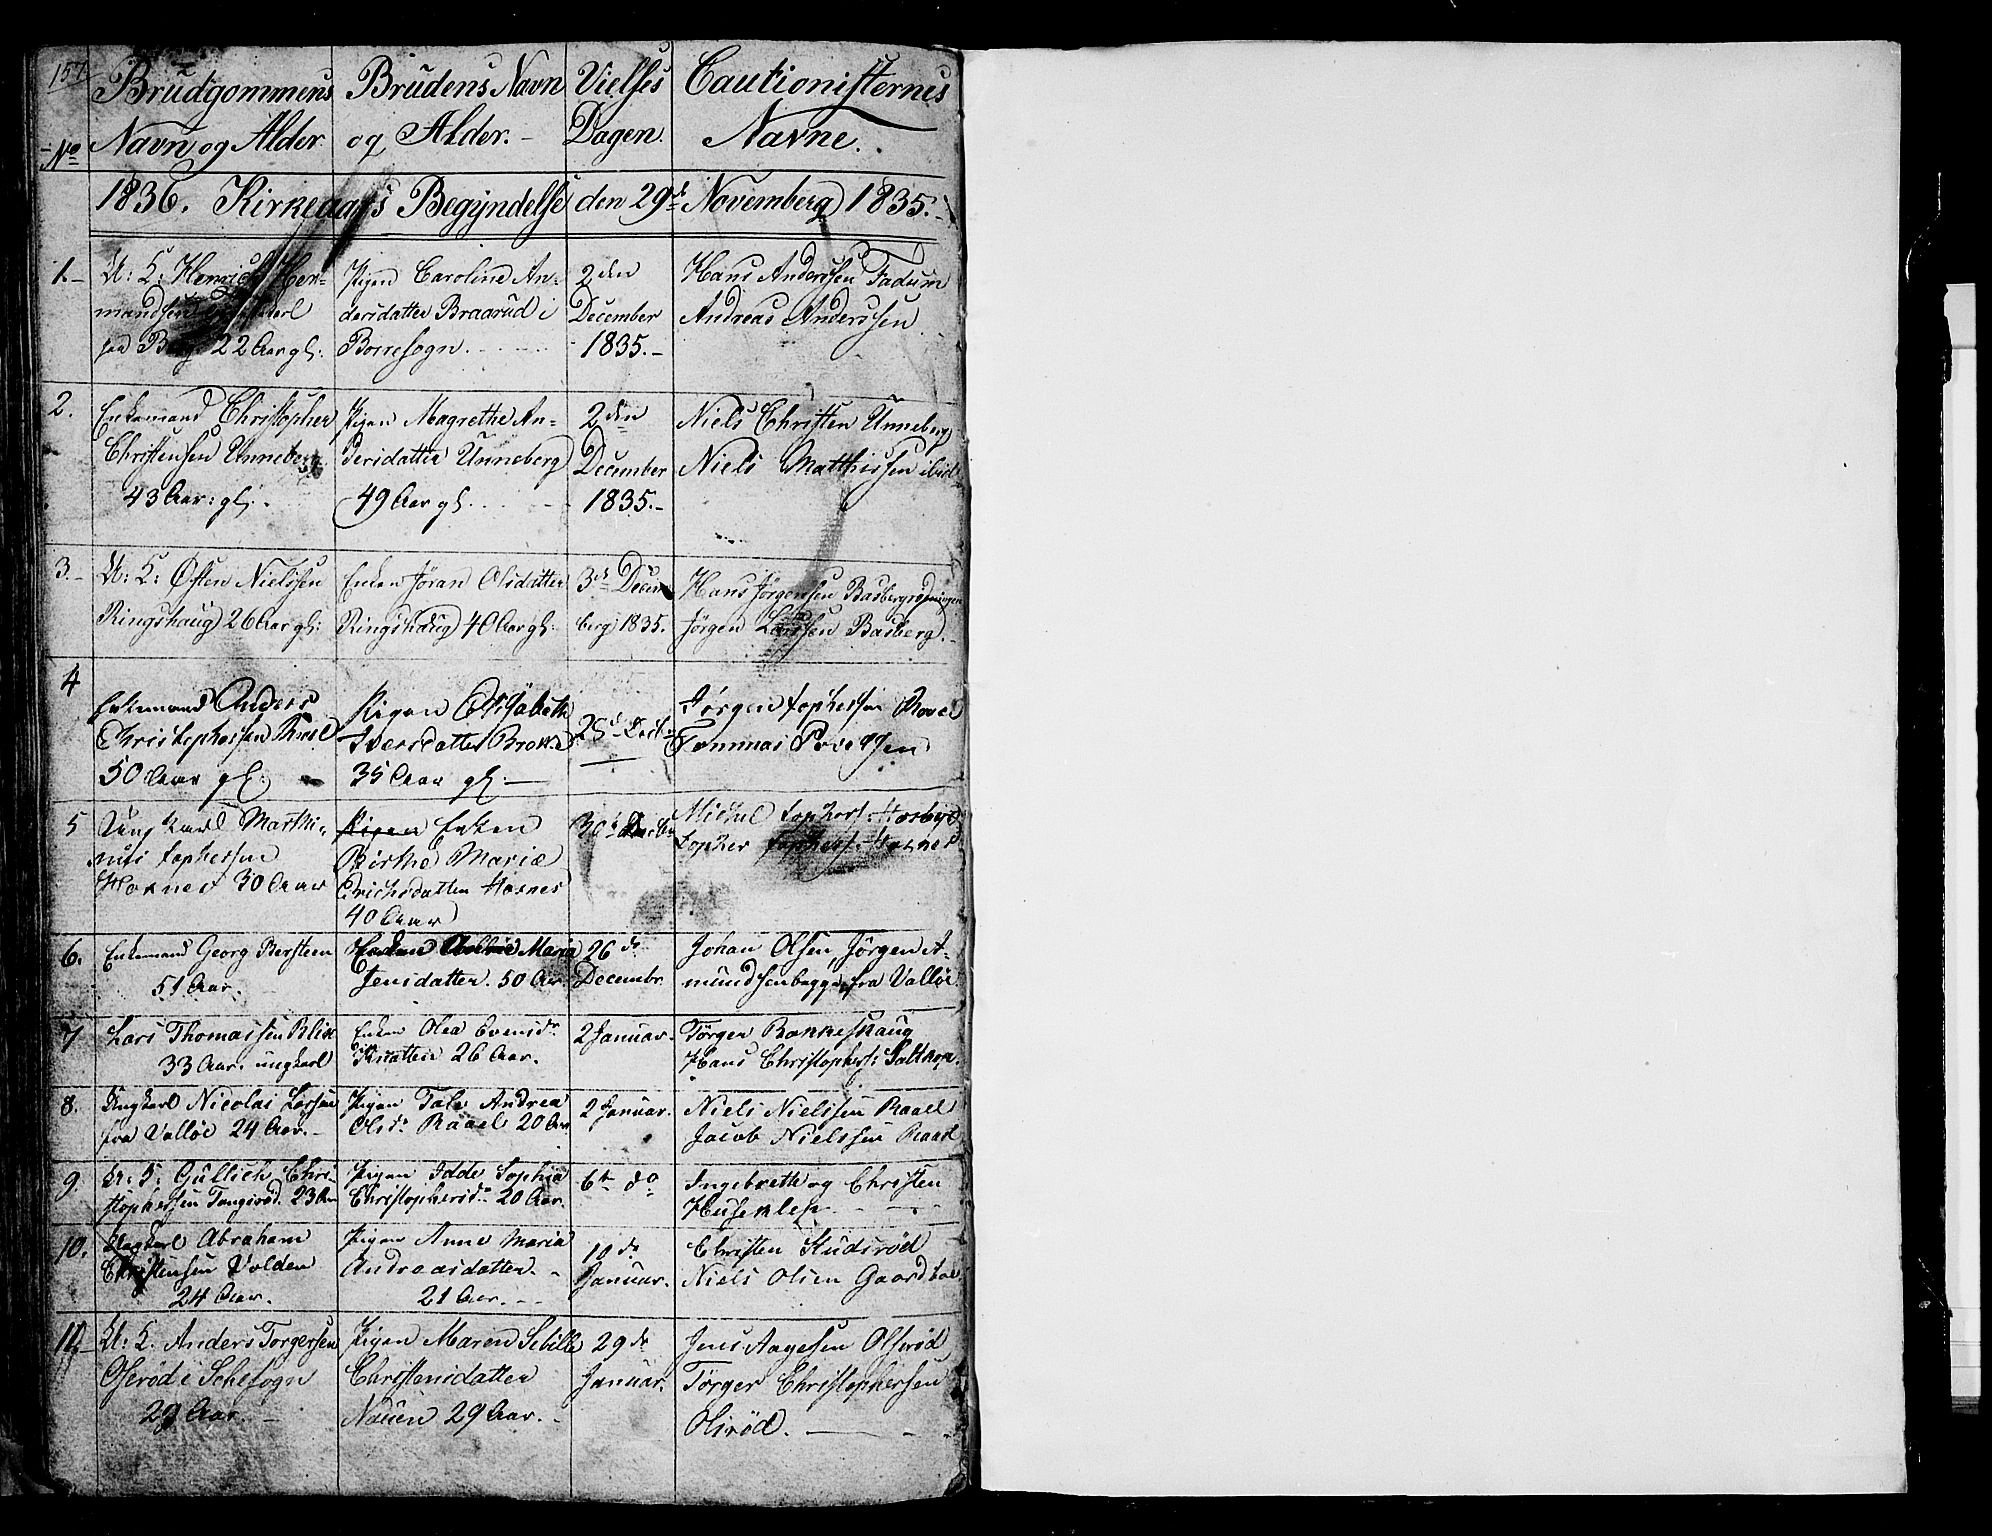 157
No
Brudgommens Navn og Alder
Brudens Navn og Alder.
Vielses Dagen.
Cautionisternes Navne.
1836. Kirkeaars Begyndelse den 29de Novemberg 1835.
1.
U: K: Henrich Her-
mandsen
22 Aar gl:
Pigen Caroline An-
dersdatter Braarud i
Borresogn.
2den
December
1835.
Hans Anderssen Fadum
Andreas Anderssen
2.
Enkemand Christopher
Christensen Unneberg
43 Aar: gl:
Pigen Magrethe An-
dersdatter Unneberg
49 Aar gl.
2den
December
1835.
Niels Christen Unneberg
Niels Matthissen ibid
3.
U: K: Østen Nielssen
Ringshaug 26 Aar gl:
Enken Jøran Olsdatter
Ringshaug 40 Aar gl:
3de Decem
berg 1835.
Hans Jørgensen Basbergrødningen
Jørgen Larssen Basberg.
4
Enkemand Anders
Christophersen
50 Aar gl:
Pigen Elisabeth
Iversdatter
35 Aar gl:
Jørgen tophersen
Tommas
5
Ung karl Marthi-
nus tophersen
Hornes 30 Aar
Pigen Enken
Birthe Maria
Erichsdatter Hornes
40 Aar
Michel tophers:
topher tophers: Hornes
6.
Enkemand Georg Bersteen
51 Aar.
Enken Maria
Jensdatter. 50 Aar.
26 de
Decembr.
Johan Olsen, Jørgen A-
mundsen begge fra Valløe
7
Lars Thomassen
33 Aar. ungkarl
Enken Olea Evensdr.
26 Aar.
2 Januar.
Törger Bakkeskaug
Hans Christophers: Saltkop.
8.
Ungkarl Nicolai Larsen
fra Valløe 24 Aar.
Pigen Tale Andrea
Olsdr. Raael 20 Aar
2 Januar.
Niels Nielssen Raael
Jacob Nielssen Raael
9.
U: K: Gullich Chri-
stophersen 23 Aar
Pigen Idde Sophia
Christophersdr. 20 Aar.
6te do
Ingebreth og Christen
Huseklep
10.
Ungkarl Abraham
Christensen Volden
24 Aar.
Pigen Anne Maria
Andreasdatter.
21 Aar.
10 de
Januar.
Christen Studsrød
Niels Olsen Gaardboe
11.
U: K. Anders Torgersen
Olsrød i Schesogn
29 Aar.
Pigen Maren Sibille
Christensdatter
Nauen 29 Aar.
29 de
Januar.
Jens Aagesen Olsrød
Törger Christophersen
Olsrød.